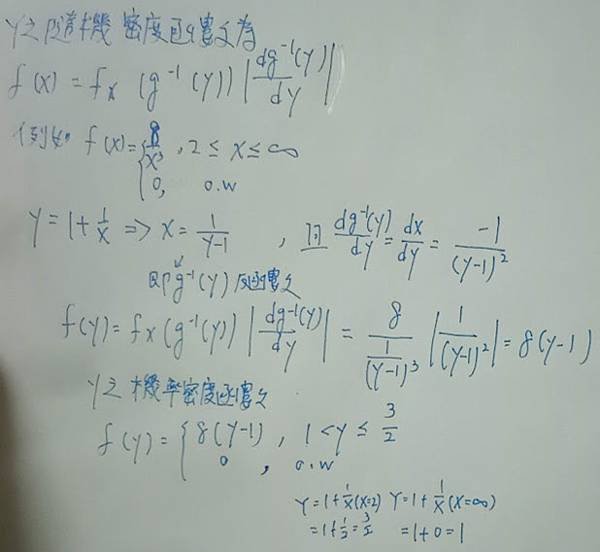 Y之隨機密度函數為
f(x) = fx (g⁻¹(y)) |dg⁻¹(y)/dy|
例如 f(x)={8/x³, 2≤x≤∞
0, o.w
Y=1+1/x ⇒ x=1/(Y-1) , 則 dg⁻¹(y)/dy = dx/dy = -1/(Y-1)²
即g⁻¹(y)反函數
f(y)=fx(g⁻¹(y)) |dg⁻¹(y)/dy| = 8/(1/(Y-1)³) |1/(Y-1)²| = 8(Y-1)
Y之機率密度函數
f(y)={8(Y-1), 1<y≤3/2
0, o.w
Y=1+1/x(x=2) Y=1+1/x(x=∞)
=1+1/2=3/2 =1+0=1